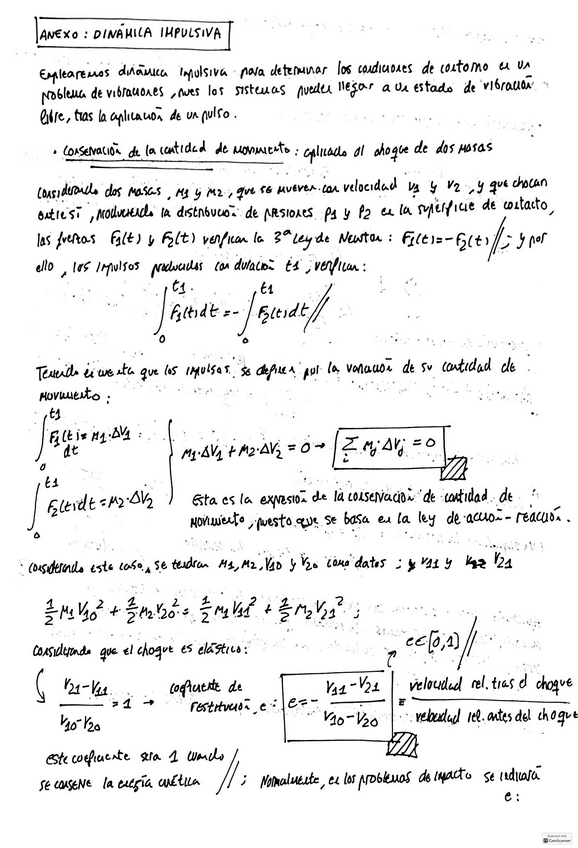 ANEXO: DINÁMICA IMPULSIVA
Emplearemos dinámica impulsiva para determinar las condiciones de contorno en un
problema de vibraciones, pues los sistemas pueden llegar a un estado de vibración
libre, tras la aplicación de un pulso.
• Conservación de la cantidad de movimiento: aplicado al choque de dos masas
Considerando dos masas, M1 y M2, que se mueven con velocidad V1 y V2, y que chocan
entre sí, produciendo la distribución de presiones P1 y P2 en la superficie de contacto,
las fuerzas F1(t) y F2(t) verifican la 3ª ley de Newton: F1(t)=-F2(t) //; y por
ello, los impulsos producidos con duración t1, verifican:
∫₀^t1 F1(t)dt = - ∫₀^t1 F2(t)dt //
Teniendo en cuenta que los impulsos se definen por la variación de su cantidad de
movimiento:
∫₀^t1 F1(t)dt = M1·ΔV1
∫₀^t1 F2(t)dt = M2·ΔV2
M1·ΔV1 + M2·ΔV2 = 0 → ∑i Mj·ΔVj = 0
Esta es la expresión de la conservación de cantidad de
movimiento, puesto que se basa en la ley de acción-reacción.
Considerando este caso, se tendrán M1, M2, V10 y V20 como datos; y V11 y V21
1/2 M1 V10² + 1/2 M2 V20² = 1/2 M1 V11² + 1/2 M2 V21² ;
Considerando que el choque es elástico:
e∈[0,1] //
(V21-V11)/(V10-V20) = 1 → coeficiente de restitución, e: e = - (V11-V21)/(V10-V20) = velocidad rel. tras el choque / velocidad rel. antes del choque
este coeficiente será 1 cuando
se conserve la energía cinética //; Normalmente, en los problemas de impacto se indicará
e:
Scanned with
CamScanner